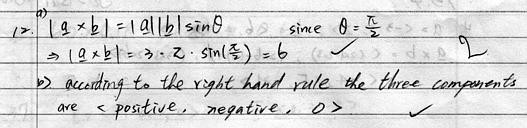 12. a) |a × b| = |a||b| sinθ since θ = π/2
⇒ |a × b| = 3 · 2 · sin(π/2) = 6 ✓ 2
b) according to the right hand rule the three components
are < positive, negative, 0> ✓